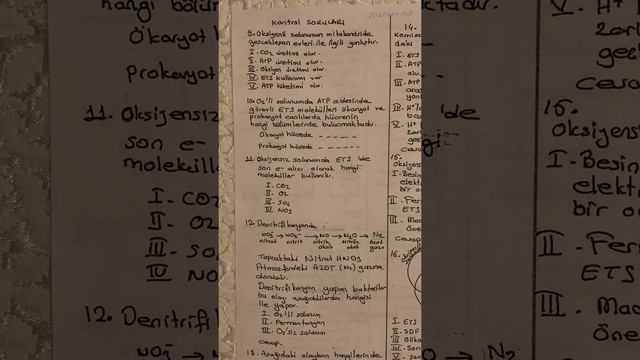 Kontrol SORULARI
9. Oksijenli solunumun mitokondride
gerçekleşen evreleri ile ilgili yanlıştır.
I - CO₂ üretimi olur.
II - ATP üretimi olur.
III - Oksijen üretimi olur.
IV - ETS kullanımı var
V - ATP tüketimi olur.
10. O₂'li solunumda ATP eldesinde
görevli ETS molekülleri ökaryot ve
prokaryot canlılarda hücrenin
hangi bölümlerinde bulunmaktadır.
Ökaryot hücrede
Prokaryot hücrede
11. Oksijensiz solunumda ETS 'de
son e- alıcı olarak hangi
moleküller kullanılır.
I - CO₂
II - O₂
III - SO₄
IV - NO₃
12. Denitrifikasyonda
NO₃ → NO₂⁻ → NO → N₂O → N₂
nitrat nitrit nitrik oksit Nitröz oksit Azot gazı
Topraktaki Nitrat HNO₃
Atmosferdeki AZOT (N₂) gazına
Denitrifikasyon yapan bakteriler
bu olayı aşağıdakilerden hangisi
ile yapar.
I - O₂'li solunum
II - Fermantasyon
III - O₂'siz solunum
cevap.
13. Aşağıdaki olayların hangilerinde
14.
I - ETS
II - ATP
III - ATP
V - H⁺
15.
Oksijens
I - Besin
elekt
bir o
II - Fer
ETS
III - Mad
öne
Cevap
16.
I - ETS
II - SDF
III - Gliko
IV - Son